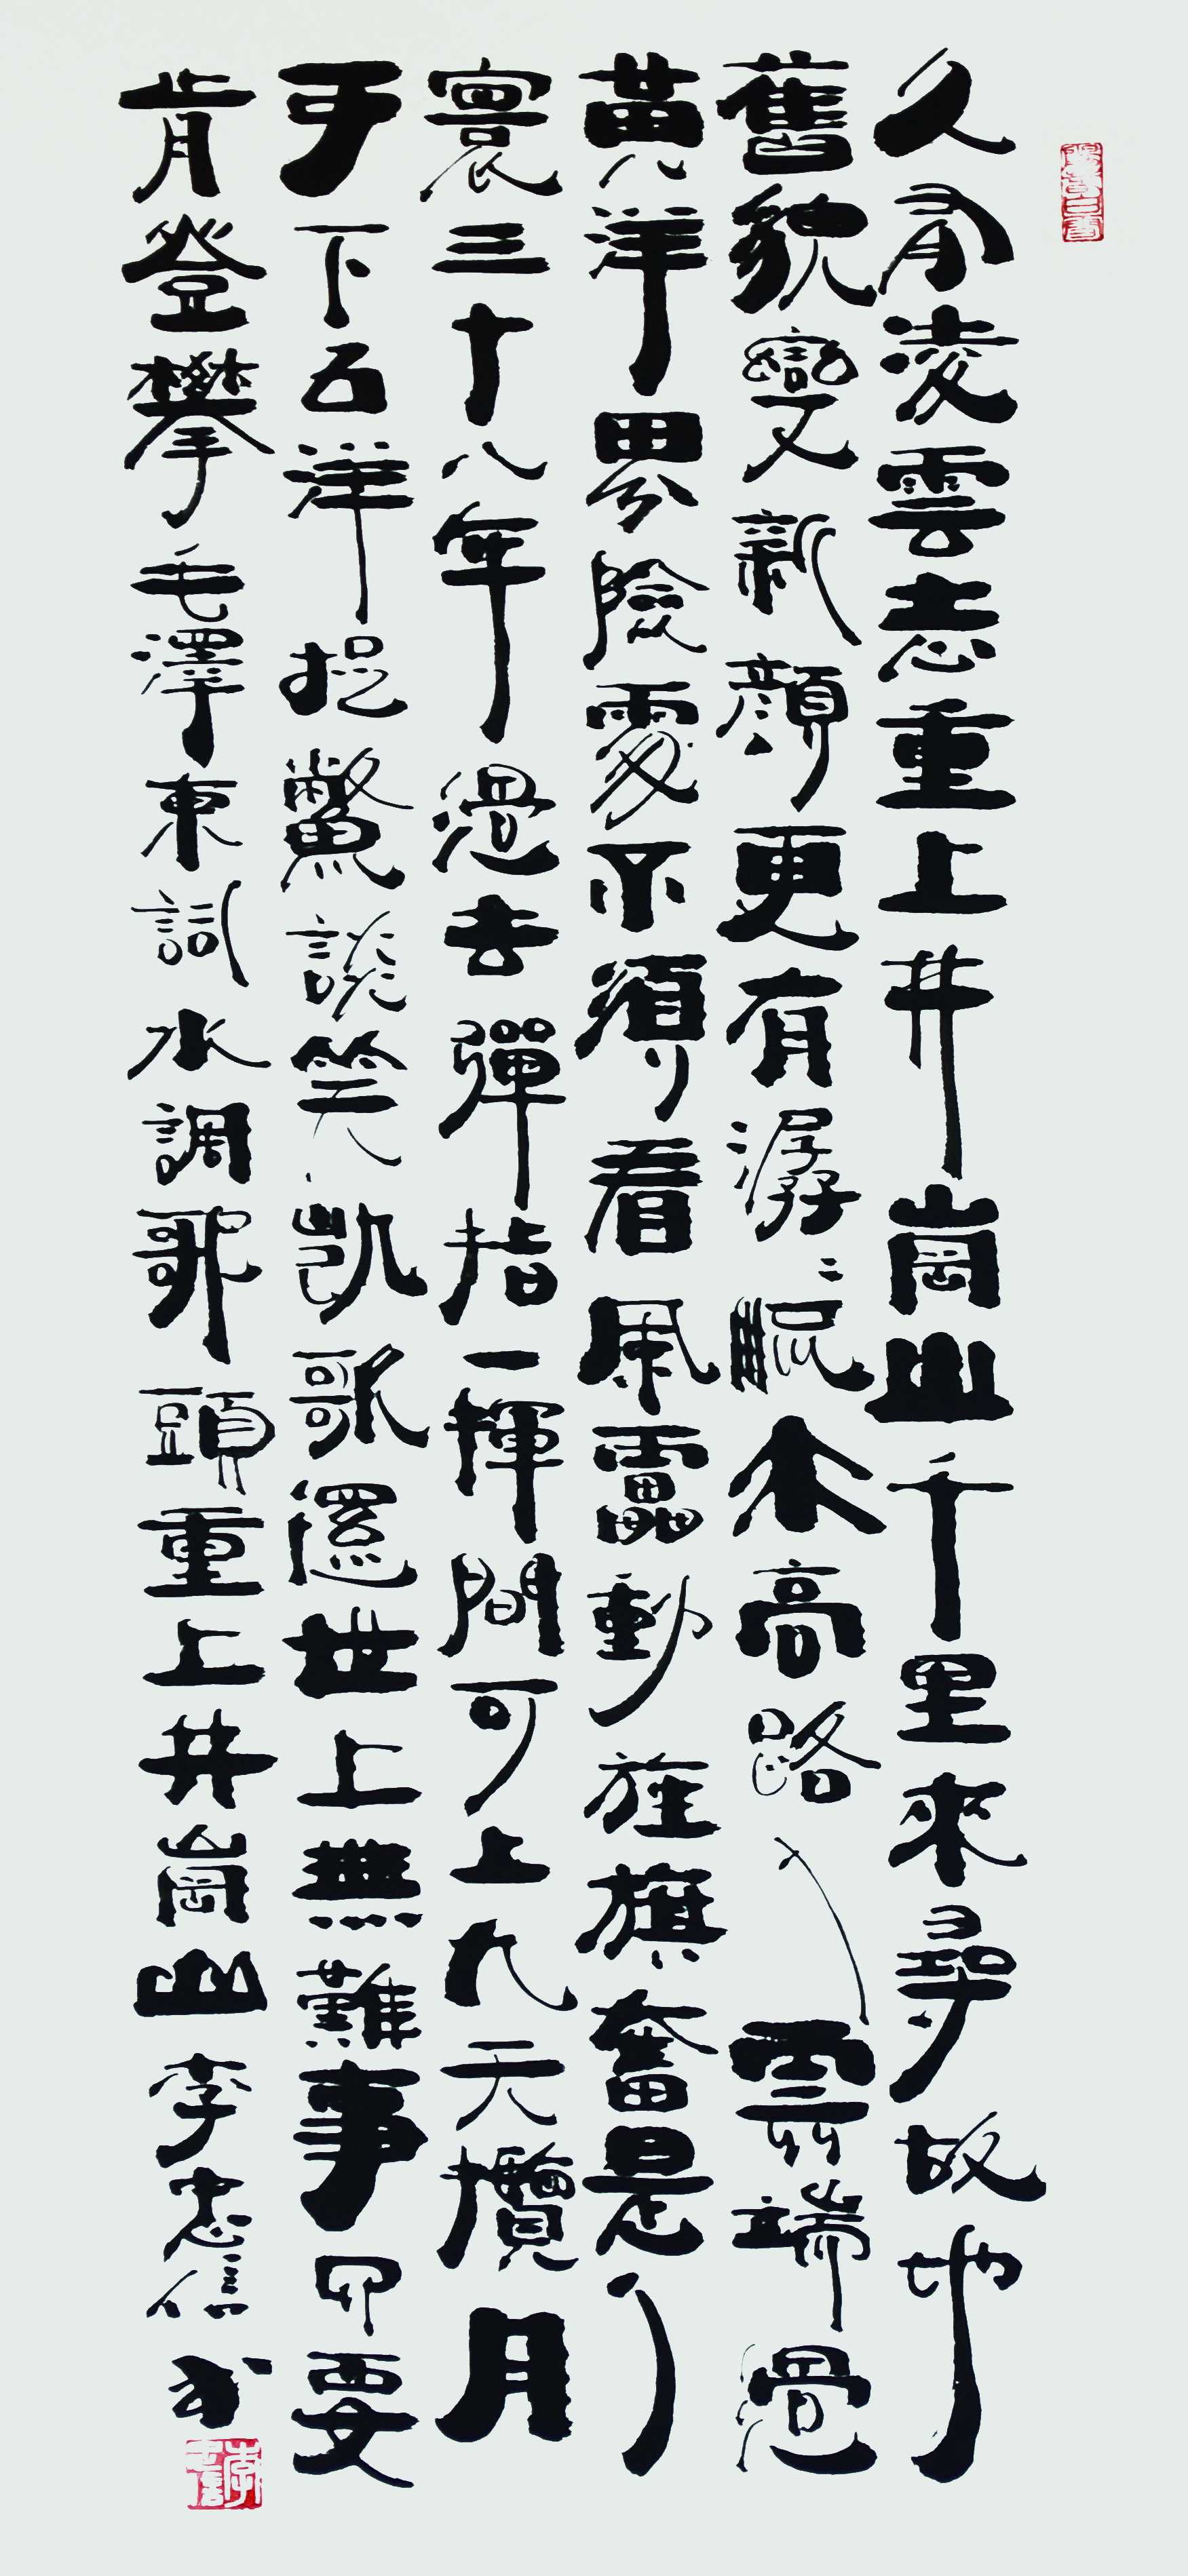 久有凌雲志重上井崗山千里來尋故地
舊貌變新顏更有潺〻流水高路入雲端過
黃洋界險處不須看風雷動旌旗奮是人
寰三十八年過去彈指一揮間可上九天攬月
可下五洋捉鱉談笑凱歌還世上無難事只要
肯登攀毛澤東詞水調歌頭重上井崗山李忠信書